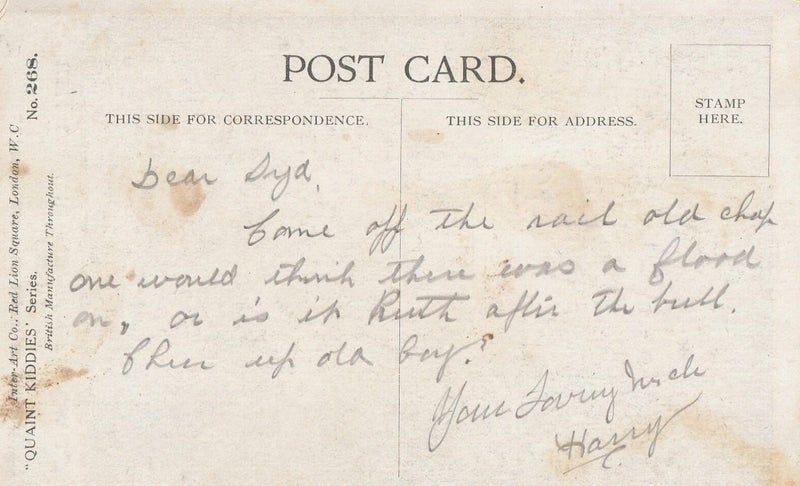 POST CARD.
THIS SIDE FOR CORRESPONDENCE.
THIS SIDE FOR ADDRESS.
STAMP
HERE.
Dear Syd,
Come off the rail old chap
one would think there was a flood
on, or is it Ruth after the bull.
Cheer up old boy?
Your Loving Uncle
Harry
Inter-Art Co., Red Lion Square, London, W.C
"QUAINT KIDDIES" Series.
British Manufacture Throughout.
No. 268.